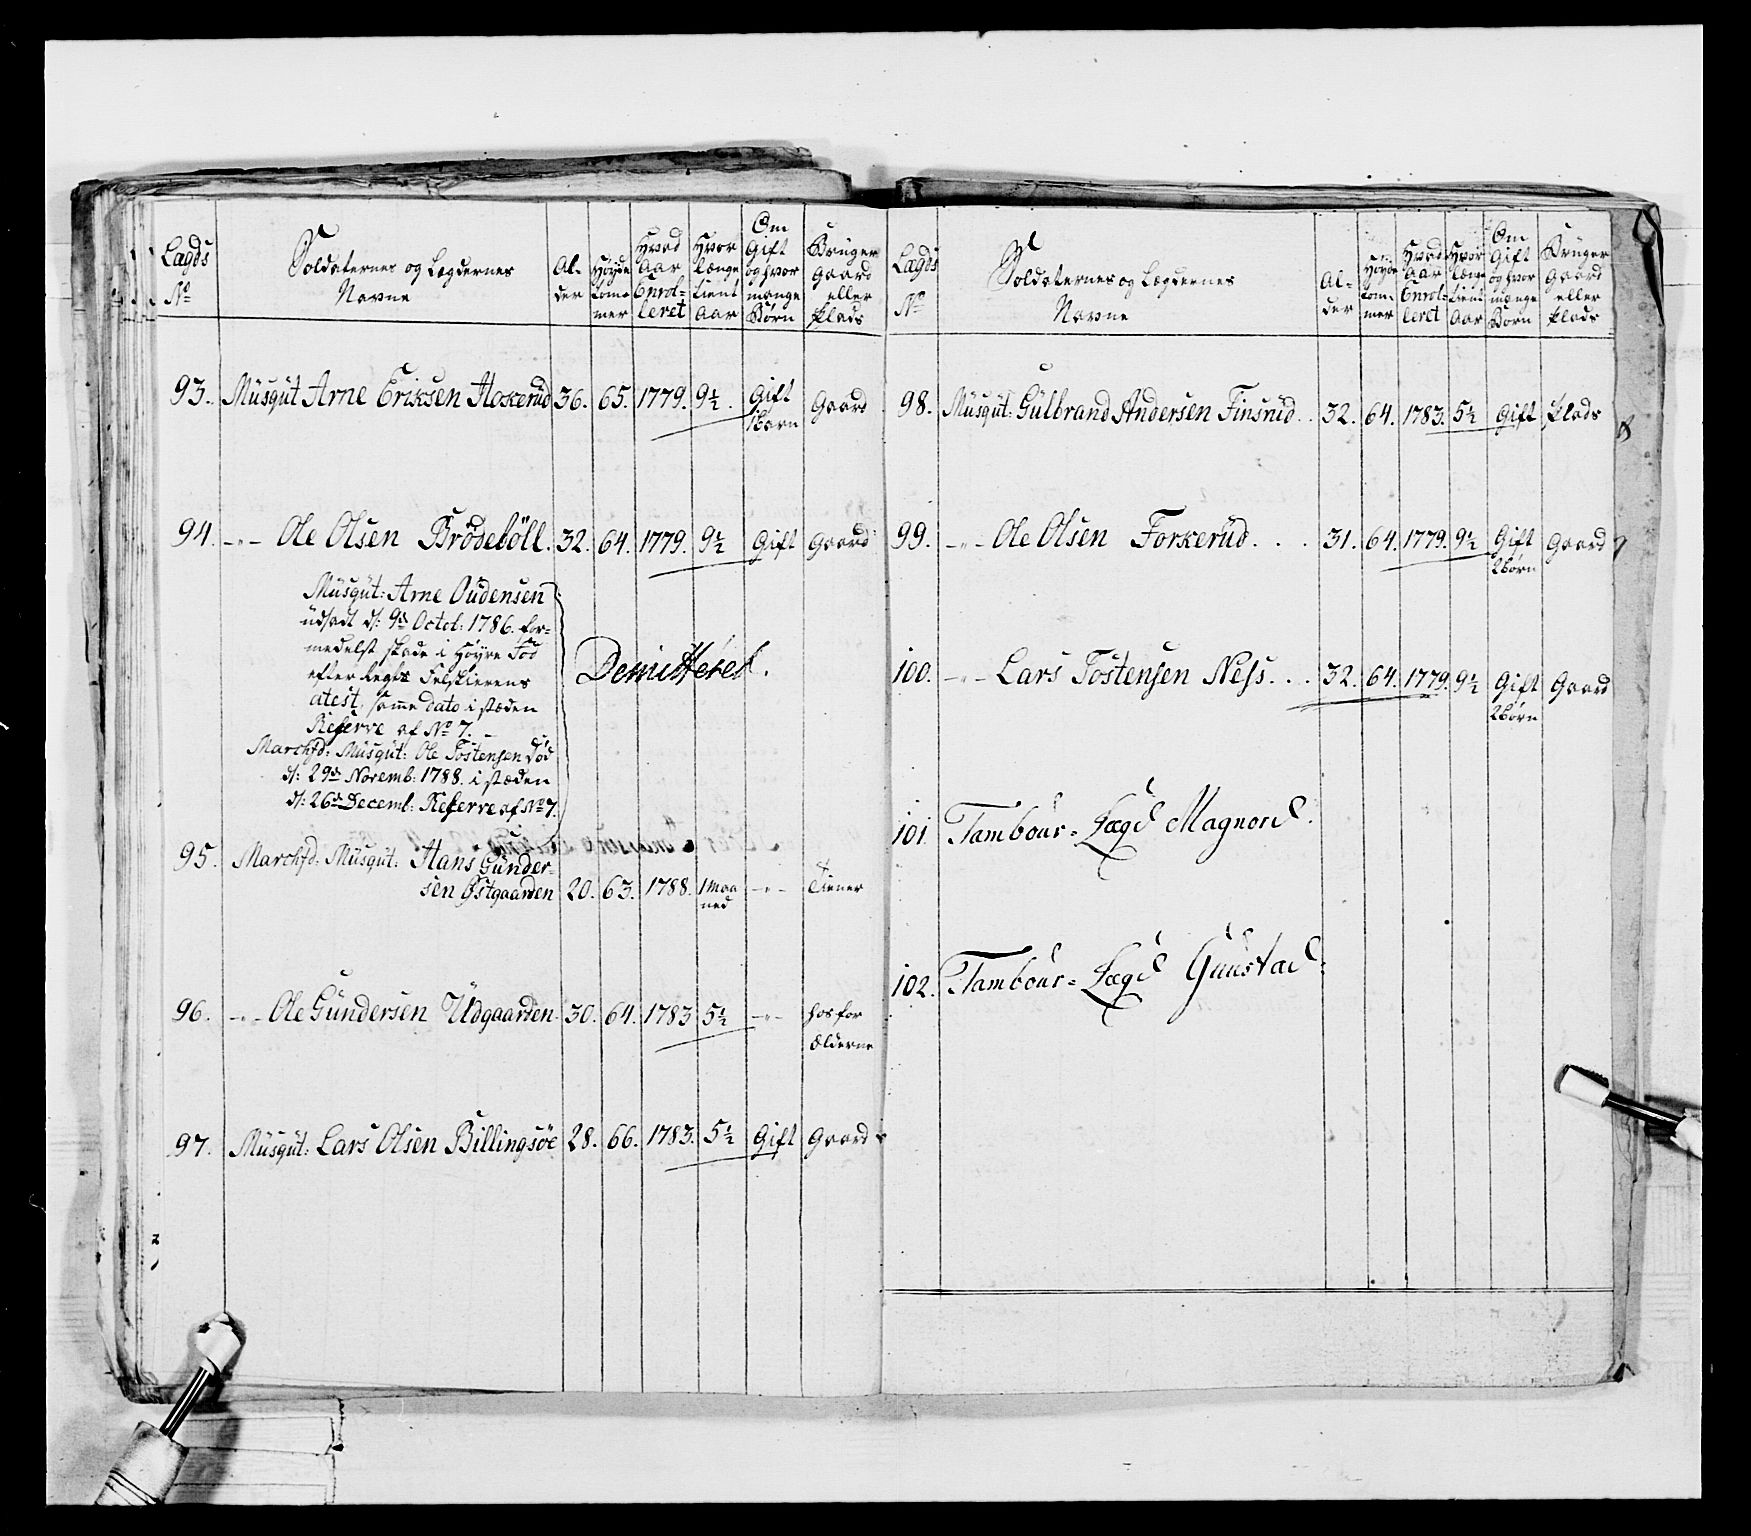 Lægds
No
Soldaternes og Lægdernes
Navne
Al-
der
Høyde
tom-
mer
Hvad
Aar
Enrol-
leret
Hvor
længe
tient
Aar
Om
Gift
og hvor
mange
Børn
Bruger
Gaard
eller
Plads
93. Musqüt Arne Eriksen Aoserüd 36. 65. 1779. 9½. Gift Gaard
1 barn
94. -"- Ole Olsen Brødeböll. 32. 64. 1779. 9½ Gift Gaard
Müsqüt: Arne Oüdensen
üdsadt d: 9de Octob: 1786. for-
medelst skade i Høyre Fod
efter Regts Feldskierens
atest, samme dato i stæden
Reserve af No 7.
Demitteret.
Marchfd: Müsqüt: Ole Tostensen död
d: 29de Novemb: 1788. i stæden
d: 26de Decemb: Reserve af No 7.
95. Marchfd: Müsqüt: Hans Günder-
sen Østgaarden 20. 63. 1788. 1 Maa -"- Tiener
ned
96. -"- Ole Gündersen Üdgaarden 30. 64. 1783 5½ -"- hos for
ælderne
97. Müsqüt: Lars Olsen Billingsöe 28. 66. 1783. 5½ Gift Gaard
Lægds
No
Soldaternes og Lægdernes
Navne
Al-
der
Høyde
tom-
mer
Hvad
Aar
Enrol-
leret
Hvor
længe
tient
Aar
Om
Gift
og hvor
mange
Børn
Bruger
Gaard
eller
Plads
98. Müsqüt: Gülbrand Andersen Finsrüd.. 32. 64. 1783. 5½ Gift Plads
99. -"- Ole Olsen Forserüd. . . 31. 64. 1779. 9½ Gift Gaard
2 børn
100. -"- Lars Tostensen Ness. . . 32. 64. 1779. 9½ Gift Gaard
2 børn
101. Tambour-Lægd Magnord.
102. Tambour-Lægd Guustad.